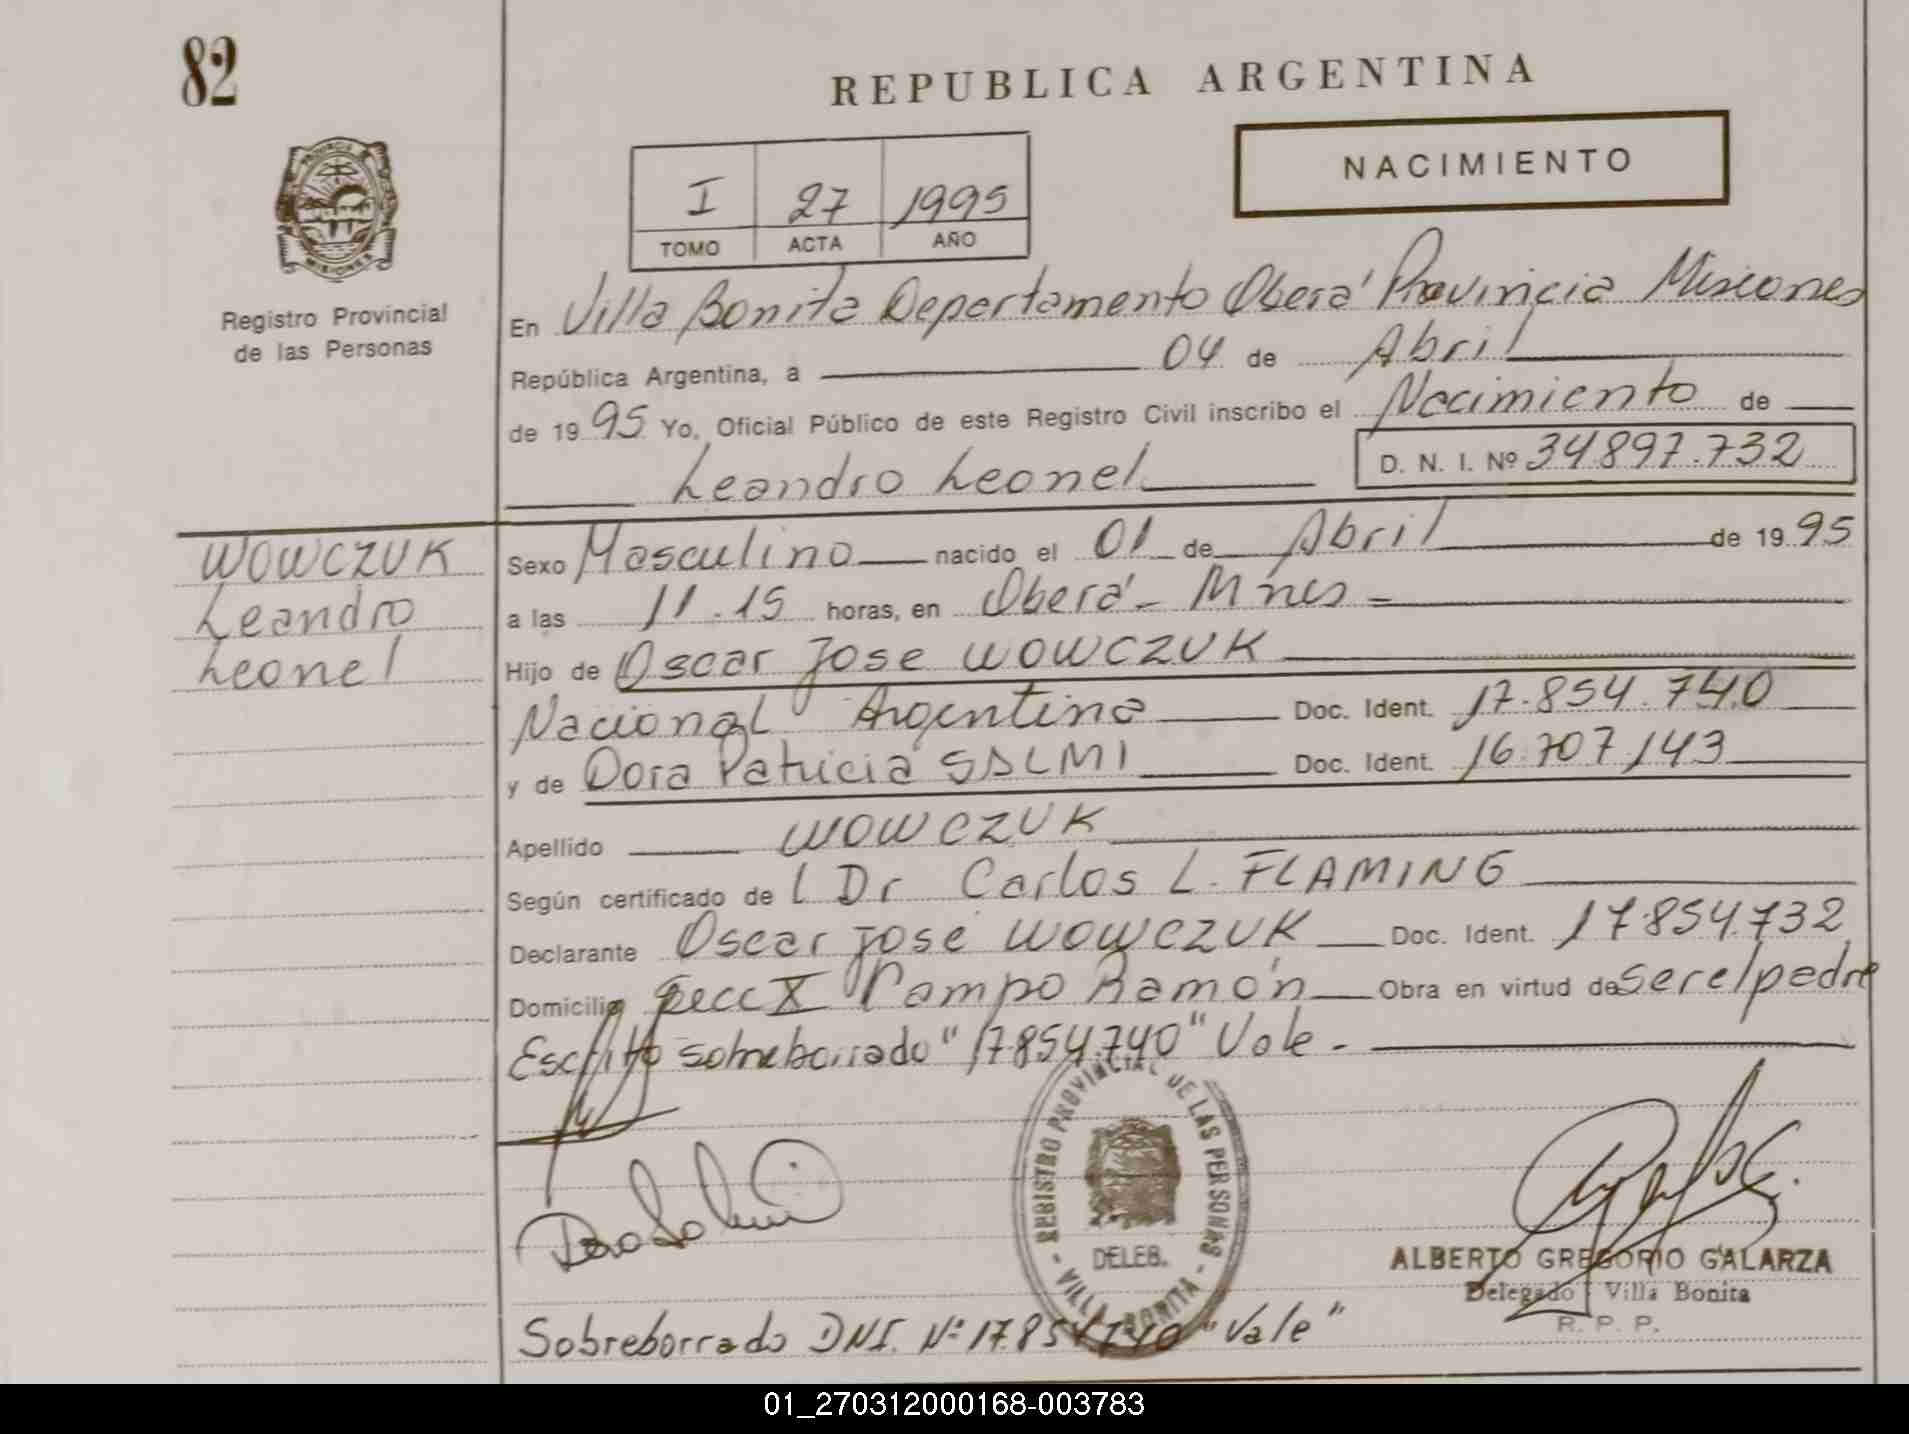 82
REPUBLICA ARGENTINA
NACIMIENTO
I 27 1995
TOMO ACTA AÑO
PROVINCIA
MISIONES
Registro Provincial
de las Personas
En Villa Bonita Departamento Oberá Provincia Misiones
República Argentina, a 04 de Abril
de 1995 Yo, Oficial Público de este Registro Civil inscribo el Nacimiento de
Leandro Leonel D. N. I. Nº 34897.732
WOWCZUK
Leandro
Leonel
Sexo Masculino nacido el 01 de Abril de 1995
a las 11.15 horas, en Oberá - Mnes -
Hijo de Oscar Jose WOWCZUK
Nacional Argentino Doc. Ident. 17.854.740
y de Dora Patricia SALMI Doc. Ident. 16.707.143
Apellido WOWCZUK
Según certificado de l Dr Carlos L. FLAMING
Declarante Oscar jose WOWCZUK Doc. Ident. 17.854.732
Domicilio Secc X Campo Ramón Obra en virtud de ser el padre
Escrito sobreborrado "17854.740" Vale -
REGISTRO PROVINCIAL DE LAS PERSONAS
DELEB.
- VILLA BONITA -
ALBERTO GREGORIO GALARZA
Delegado Villa Bonita
R. P. P.
Sobreborrado DNI. Nº 17.854.740 "Vale"
01_270312000168-003783